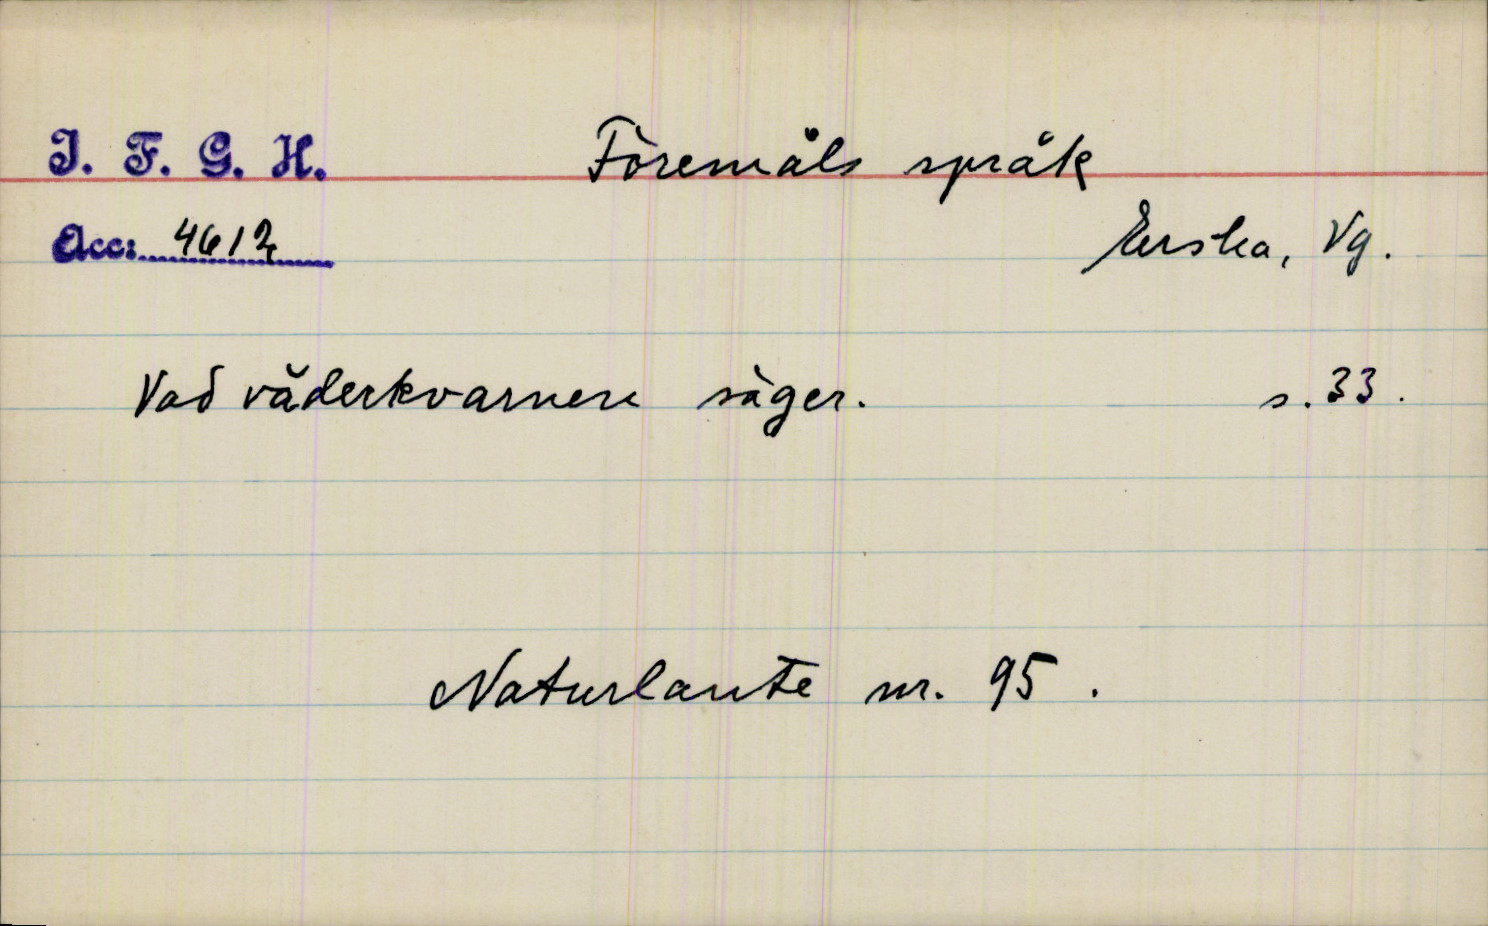 I. F. G. H. Föremåls språk
Acc: 4612 Erska, Vg.
Vad väderkvarnen säger. s. 33.
Naturlaute nr. 95.